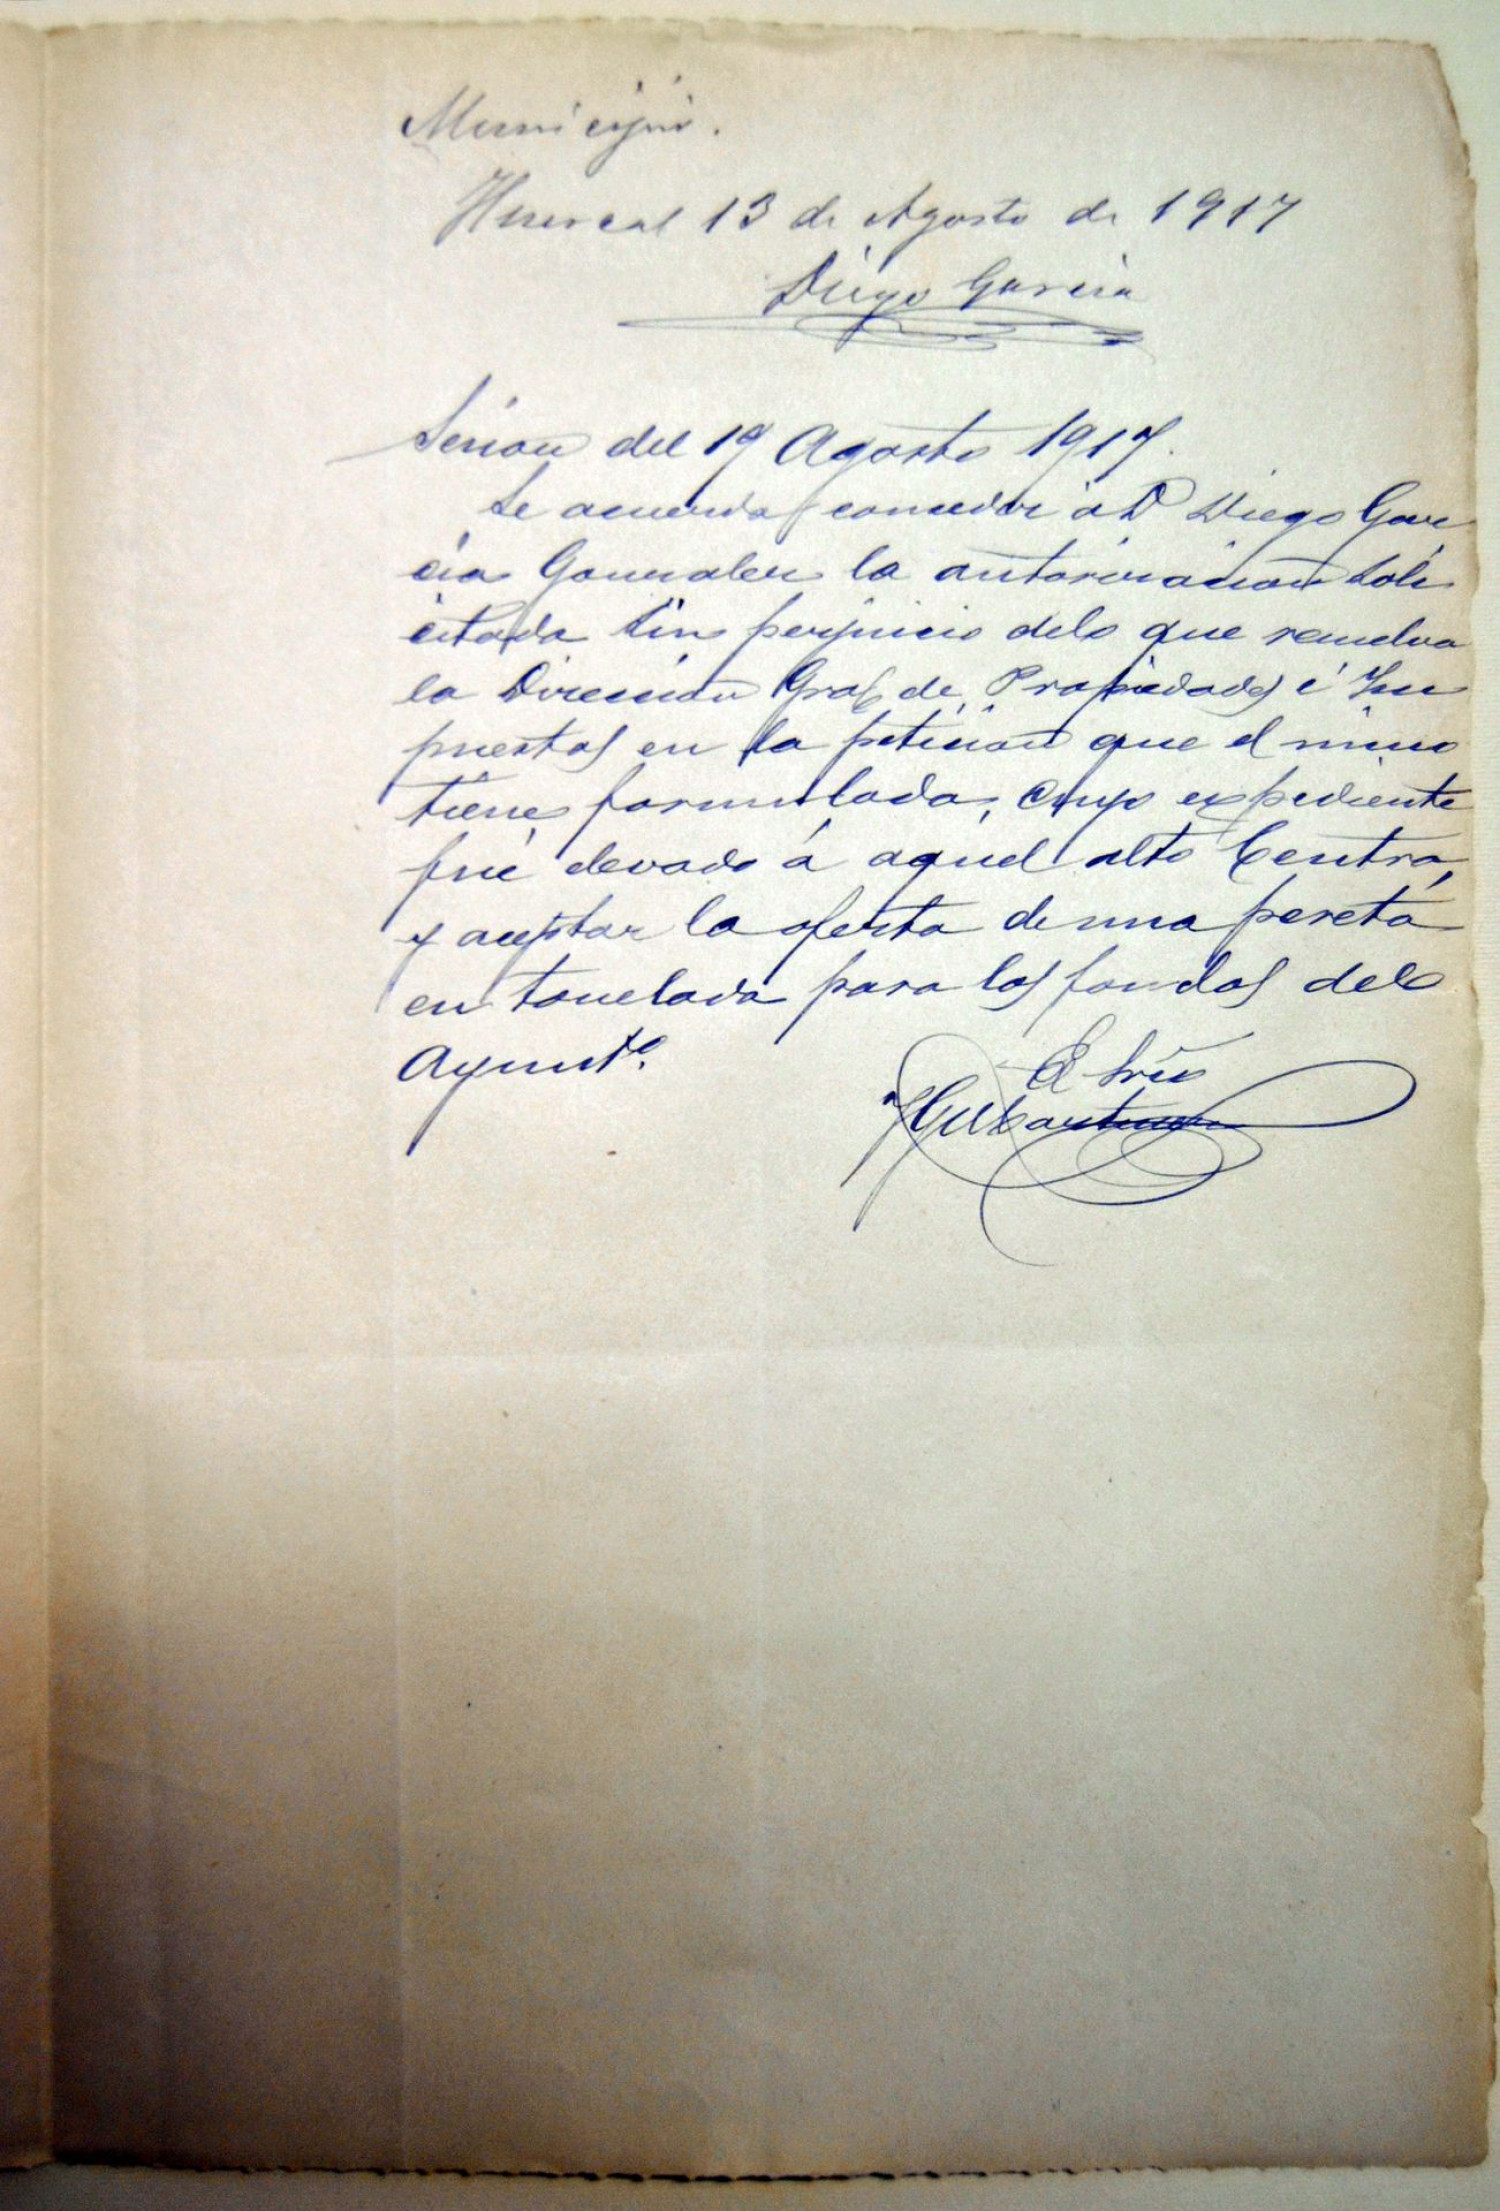 Municipio.
Huercal 13 de Agosto de 1917
Diego Garcia
Sesion del 19 Agosto 1917.
Se acuerda conceder á D Diego Gar
cia Gonzalez la autorizacion soli
citada sin perjuicio de lo que resuelva
la Direccion Gral de Propiedades é Im
puestos en la peticion que el mismo
tiene formulada, cuyo expediente
fué elevado á aquel alto Centro,
y aceptar la oferta de una peseta
en tonelada para los fondos del
Ayuntº.
El Srio